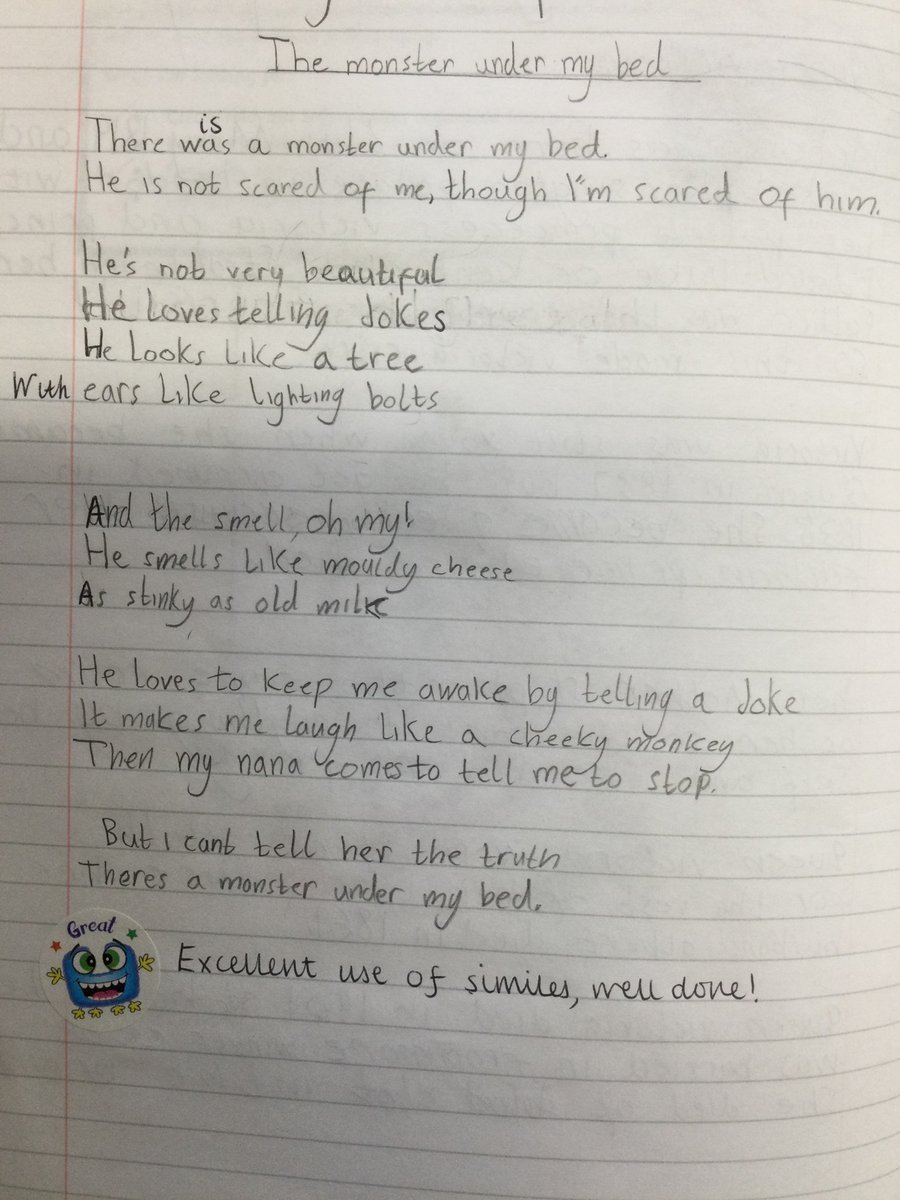 The monster under my bed
is
There was a monster under my bed.
He is not scared of me, though I'm scared of him.
He's not very beautiful
He loves telling Jokes
He looks like a tree
With ears like lighting bolts
And the smell, oh my!
He smells like mouldy cheese
As stinky as old milk
He loves to keep me awake by telling a Joke
It makes me laugh like a cheeky monkey
Then my nana comes to tell me to stop.
But I cant tell her the truth
Theres a monster under my bed.
Great
Excellent use of similes, well done!